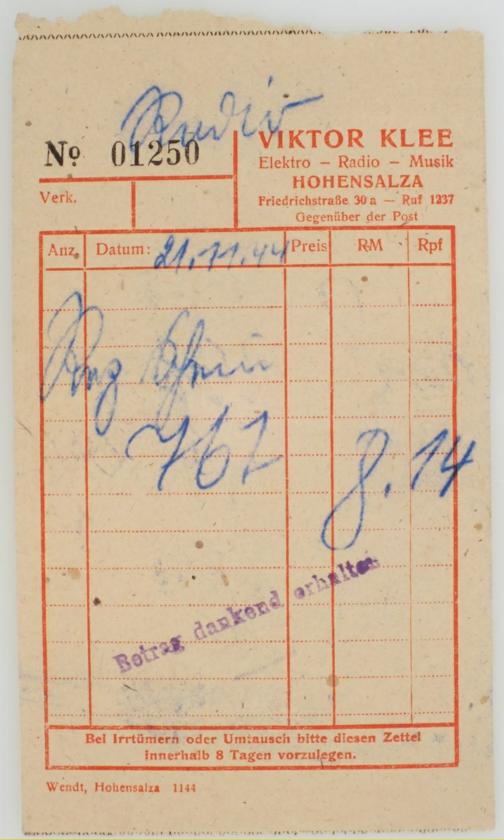 Radio
No 01250
VIKTOR KLEE
Elektro – Radio – Musik
HOHENSALZA
Friedrichstraße 30a — Ruf 1237
Gegenüber der Post
Verk.
Anz. Datum: 21.11.44 Preis RM Rpf
762
8.14
Betrag dankend erhalten
Bei Irrtümern oder Umtausch bitte diesen Zettel
innerhalb 8 Tagen vorzulegen.
Wendt, Hohensalza 1144